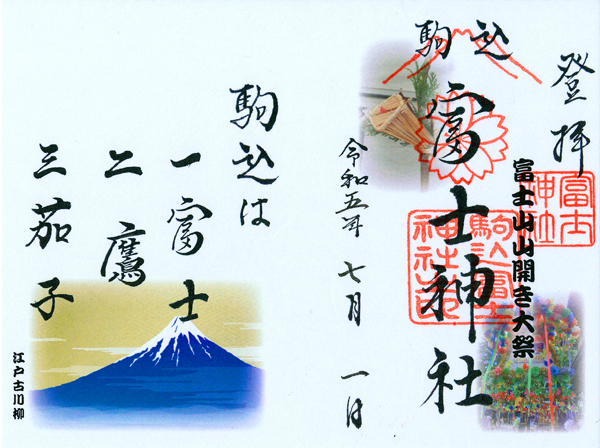 登拝
富士山山開き大祭
駒込
富士神社
富士
神社
駒込富士
神社芝
令和五年 七月 一日
駒込は
一富士
二鷹
三茄子
江戸古川柳